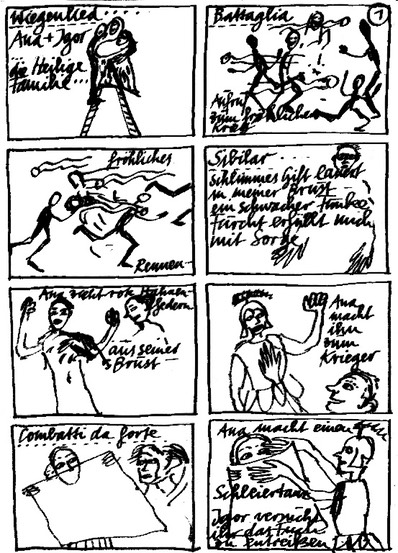 Wiegenlied.....
Ana + Igor
die Heilige
Familie...
Battaglia
1
Aufruf
zum fröhlichen
Krieg
fröhliches
Rennen
Sibilar
schlimmes Gift lauert
in meiner Brust
ein schwacher Funke
Furcht erfüllt mich
mit Sorge
Ana zieht rote Hahnen-
federn
aus seiner
Brust
Ana
macht
ihn
zum
Krieger
Combatti da forte
Ana macht einen
Schleiertanz
Igor versucht
ihr das Tuch
zu entreißen